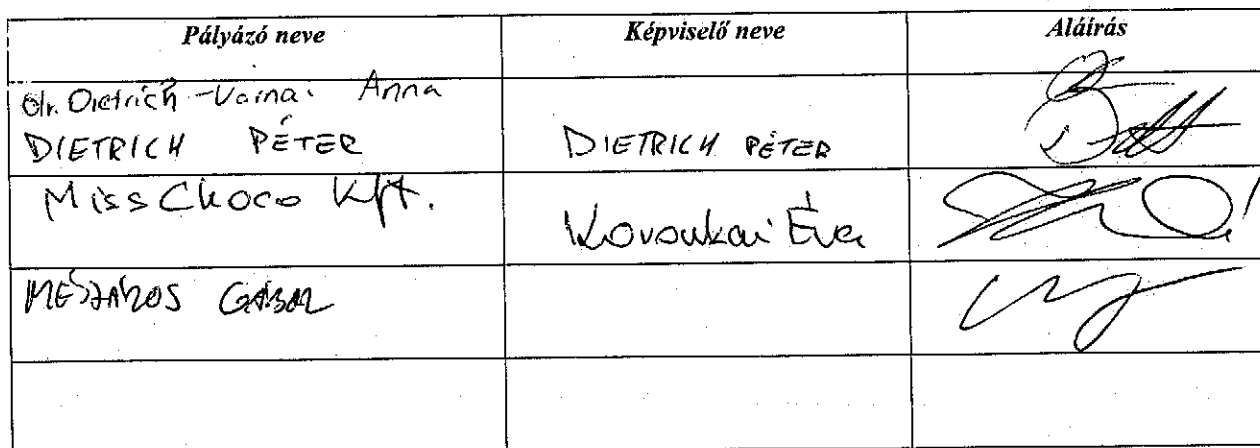 Pályázó neve Képviselő neve Aláírás
dr. Dietrich-Várnai Anna
DIETRICH PÉTER DIETRICH PÉTER
Miss Choco Kft.
Éva
MÉSZÁROS GÁBOR